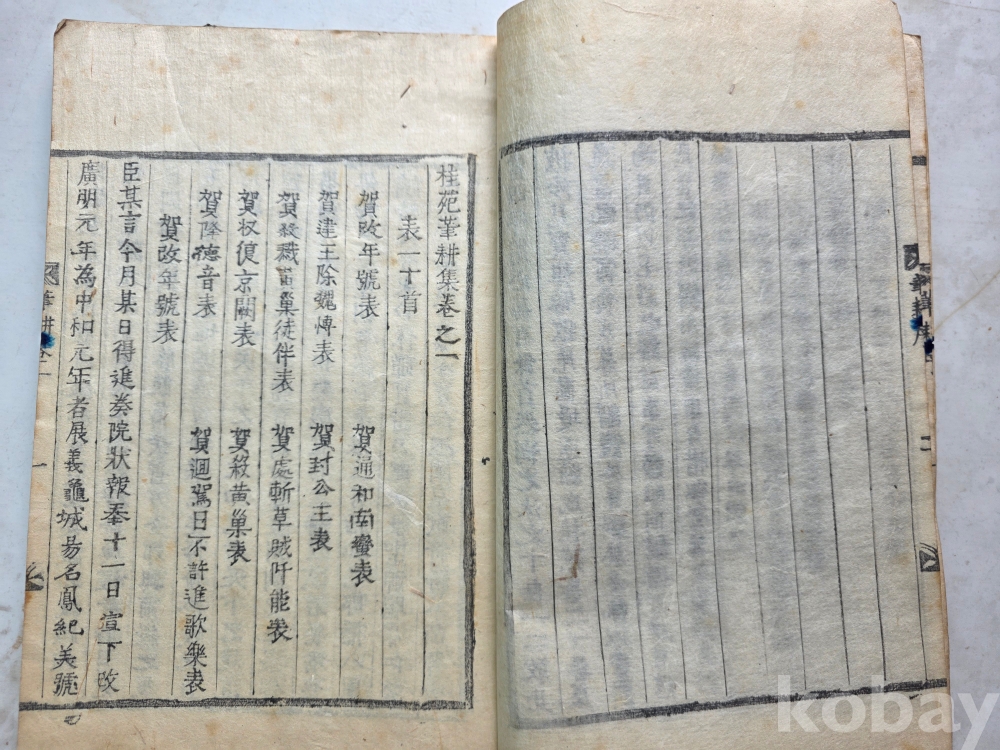 筆耕序
二
桂苑筆耕集卷之一
表一十首
賀改年號表 賀通和南蠻表
賀建王除魏博表 賀封公主表
賀殺戮黃巢徒伴表 賀處斬草賊阡能表
賀收復京闕表 賀殺黃巢表
賀降德音表 賀迴駕日不許進歌樂表
賀改年號表
臣某言今月某日得進奏院狀報奉十一日宣下改
廣明元年為中和元年者展義龜城易名鳳紀美號
筆耕卷一
一
kobay